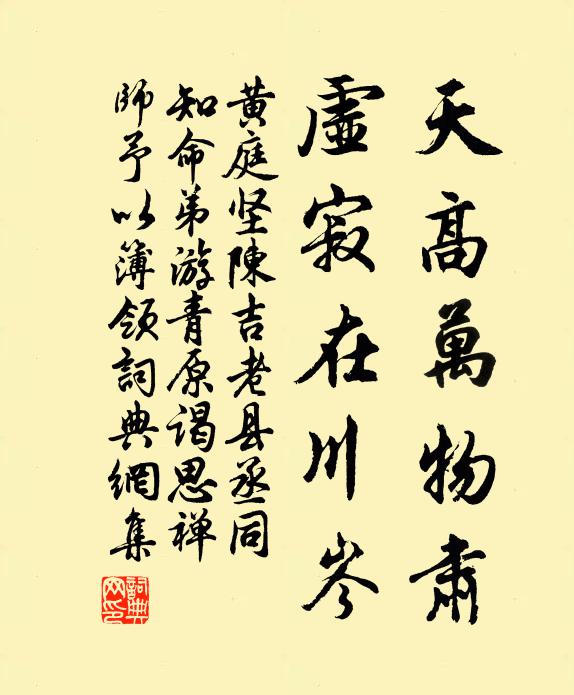 天高萬物肅
虛寂在川岑
黄庭坚陳吉老县丞同
知命弟游青原谒思禅
師予以簿領詞典網集
詞典網印